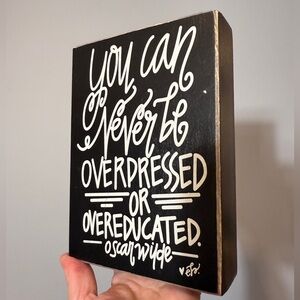 you can
Never be
OVERDRESSED
OR
OVEREDUCATED.
oscar wilde